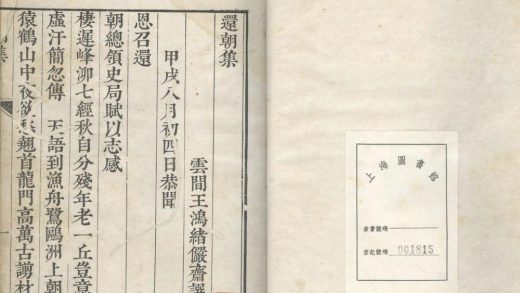 還朝集
雲間王鴻緒儼齋譔
甲戌八月初四日恭聞
恩召還
朝總領史局賦以志感
棲遲峰泖七經秋自分殘年老一丘豈意
虛汗簡忽傳　天語到漁舟鷺鷗洲上朝
猿鶴山中夜 翹首龍門高萬古謭材
集
上海圖書館
索書號碼
登記號碼 001815